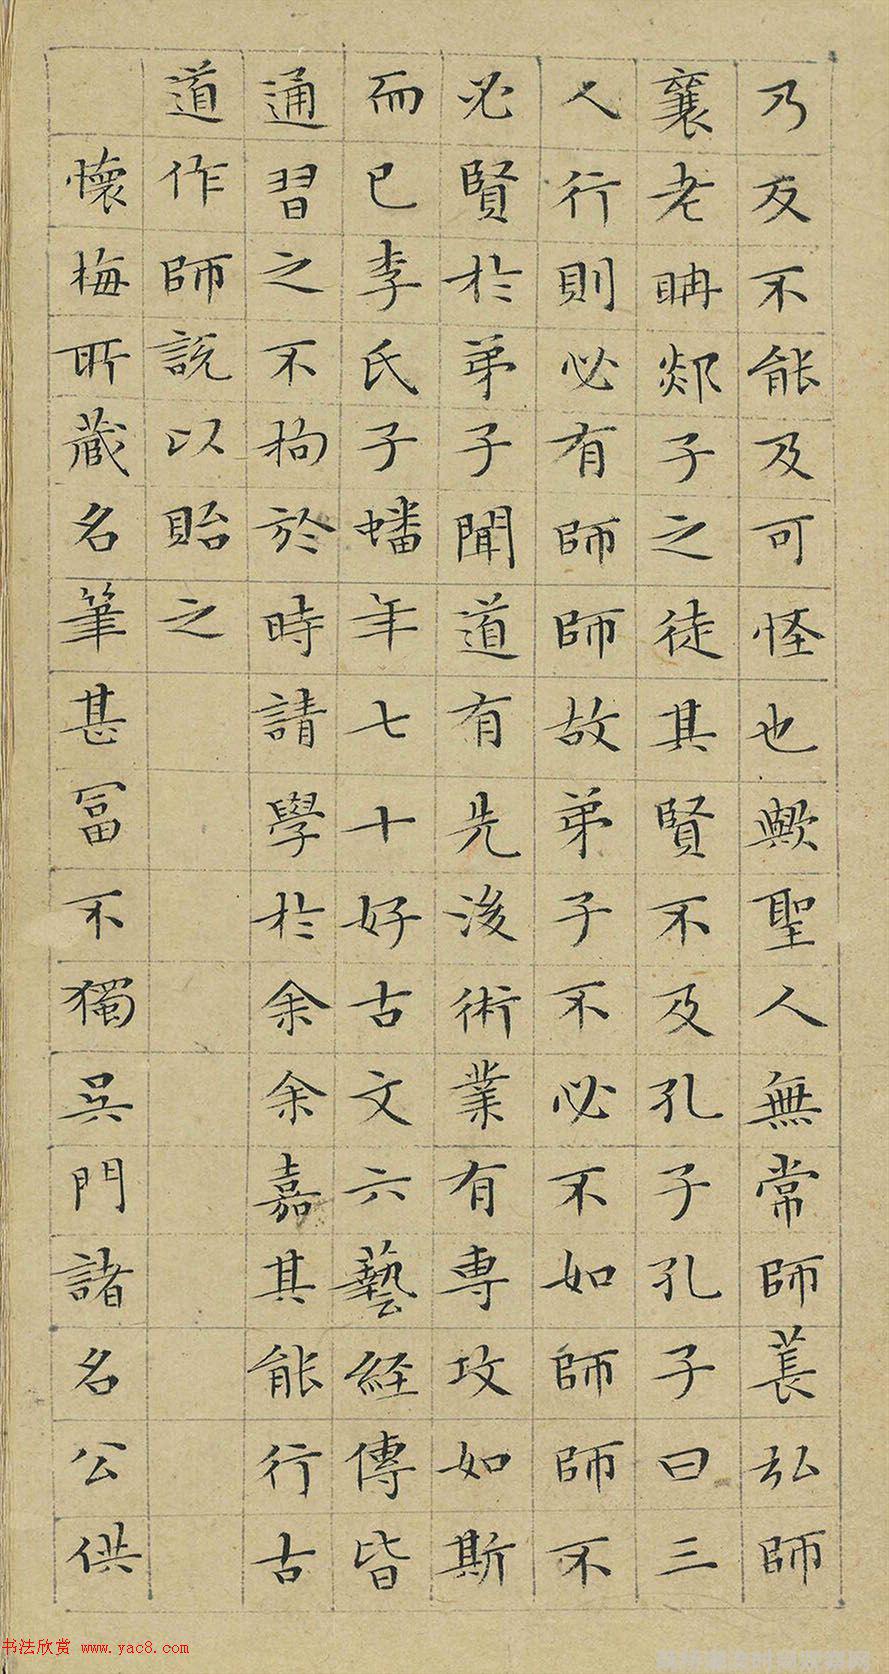 乃反不能及可怪也歟聖人無常師萇弘師
襄老聃郯子之徒其賢不及孔子孔子曰三
人行則必有師師故弟子不必不如師師不
必賢於弟子聞道有先後術業有專攻如斯
而已李氏子蟠年七十好古文六藝経傳皆
通習之不拘於時請學於余余嘉其能行古
道作師説以貽之
懷梅所藏名筆甚冨不獨吳門諸名公供
书法欣赏 www.yac8.com